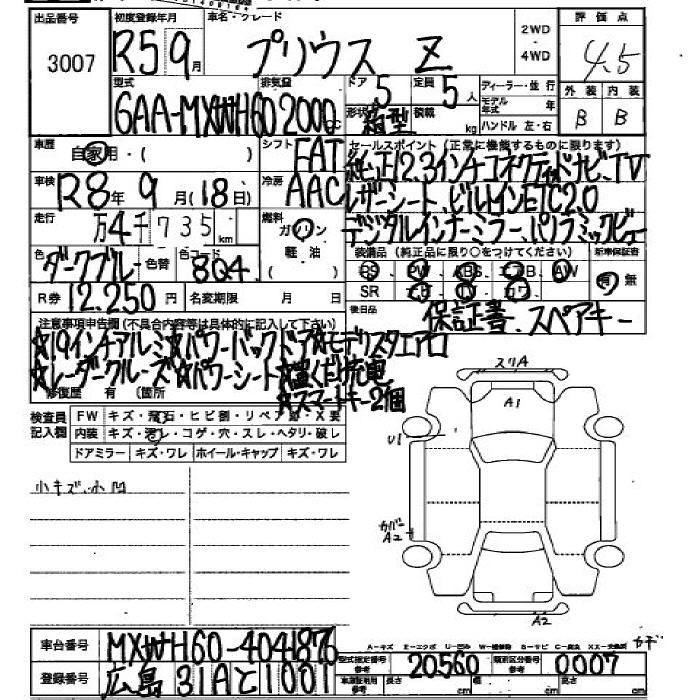 出品番号 3007
初度登録年月 R5 9月
車名・グレード プリウス Z
2WD
4WD
評価点 4.5
外装 内装
B B
型式 6AA-MXWH60
排気量 2000cc
ドア 5
定員 5人
形状 箱型
積載 kg
ディーラー・並行
モデル年式 年
ハンドル 左・右
車歴 自家用・( )
シフト FAT
車検 R8年9月(18日)
冷房 AAC
走行 万4千735km
燃料 ガソリン
軽油
( )
色 ダークブルー 色替
色コード 8Q4
R券 12.250円
名変期限 月 日
セールスポイント(正常に機能するものに限ります)
純正12.3インチコネクティッドナビ、TV
レザーシート、ビルトインETC2.0
デジタルインナーミラー、パノラミックビュー
装備品(純正品に限り○をつけてください)
新車保証書
PS PW ABS エアB AW
SR ナビ TV カワ
有・無
後日品 保証書、スペアキー
注意事項申告欄(不具合内容等は具体的に記入して下さい)
☆19インチアルミ☆パワーバックドア☆モデリスタエアロ
☆レーダークルーズ☆パワーシート☆置くだけ充電
☆スマートキー2個
修復歴 有 (箇所
検査員記入欄
FW キズ・飛石・ヒビ割・リペア跡・X要
内装 キズ・汚れ・コゲ・穴・スレ・ヘタリ・破レ
ドアミラー キズ・ワレ ホイール・キャップ キズ・ワレ
小キズ・小凹
スリA
A1
U1
カバーA2
A2
カギ
A-キズ E-エクボ U-凹み W-補修跡 S-サビ C-腐食 XX-交換済
車台番号 MXWH60-4041876
登録番号 広島 31A と 1001
型式指定番号参考 20560
類別区分番号参考 0007
車庫証明用参考 長さ cm 幅 cm 高さ cm